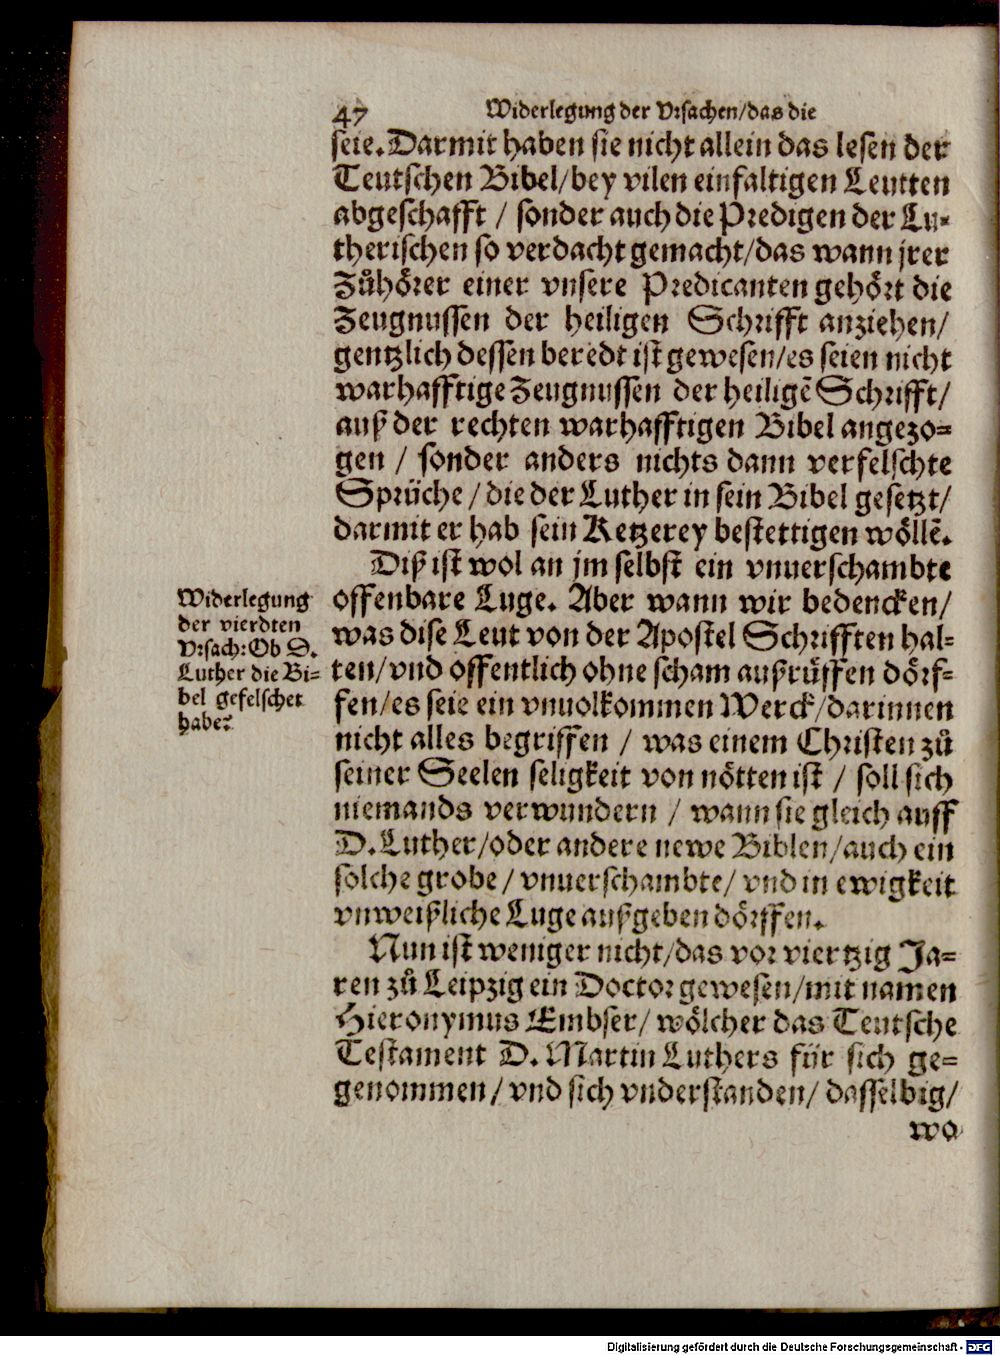 47 Widerlegung der Vrsachen/das die
seie. Darmit haben sie nicht allein das lesen der
Teutschen Bibel/bey vilen einfaltigen Leutten
abgeschafft / sonder auch die Predigen der Lu-
therischen so verdacht gemacht/das wann jrer
Zůhörer einer vnsere Predicanten gehört die
Zeugnussen der heiligen Schrifft anziehen/
gentzlich dessen beredt ist gewesen/es seien nicht
warhafftige Zeugnussen der heiligē Schrifft/
auß der rechten warhafftigen Bibel angezo-
gen / sonder anders nichts dann verfelschte
Sprüche / die der Luther in sein Bibel gesetzt/
darmit er hab sein Ketzerey bestettigen wöllē.
Diß ist wol an jm selbst ein vnuerschambte
offenbare Luge. Aber wann wir bedencken/
was dise Leut von der Apostel Schrifften hal-
ten/vnd offentlich ohne scham außrüffen dörf-
fen/es seie ein vnuolkommen Werck/darinnen
nicht alles begriffen / was einem Christen zů
seiner Seelen seligkeit von nötten ist / soll sich
niemands verwundern / wann sie gleich auff
D. Luther/oder andere newe Biblen/auch ein
solche grobe / vnuerschambte/ vnd in ewigkeit
vnweißliche Luge außgeben dörffen.
Nun ist weniger nicht/das vor viertzig Ja-
ren zů Leipzig ein Doctor gewesen/mit namen
Hieronymus Embser/ wölcher das Teutsche
Testament D. Martin Luthers für sich ge-
genommen/ vnd sich vnderstanden/ dasselbig/
wo
Widerlegung
der vierdten
Vrsach: Ob D.
Luther die Bi-
bel gefelschet
habe?
Digitalisierung gefördert durch die Deutsche Forschungsgemeinschaft - DFG